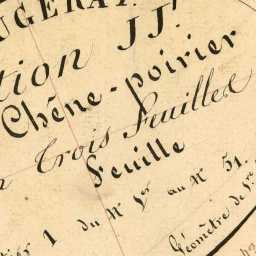 UGERAY
tion JJ.
Chêne-poirier
Trois Feuilles
Feuille
1 du N° 1er au N° 51.
Géomètre de 1re